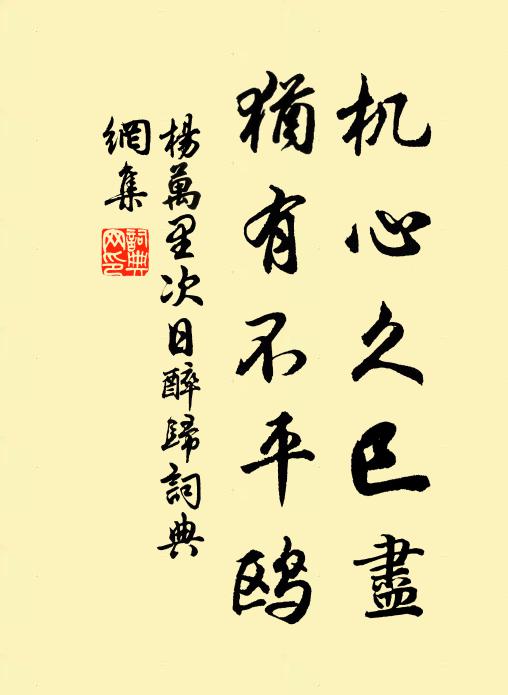 机心久已盡
猶有不平鷗
楊萬里次日醉歸詞典
網集
詞典網印